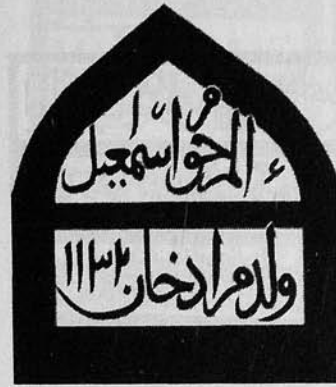 المرحوم اسمعیل
ولد مراد خان ۱۱۳۲